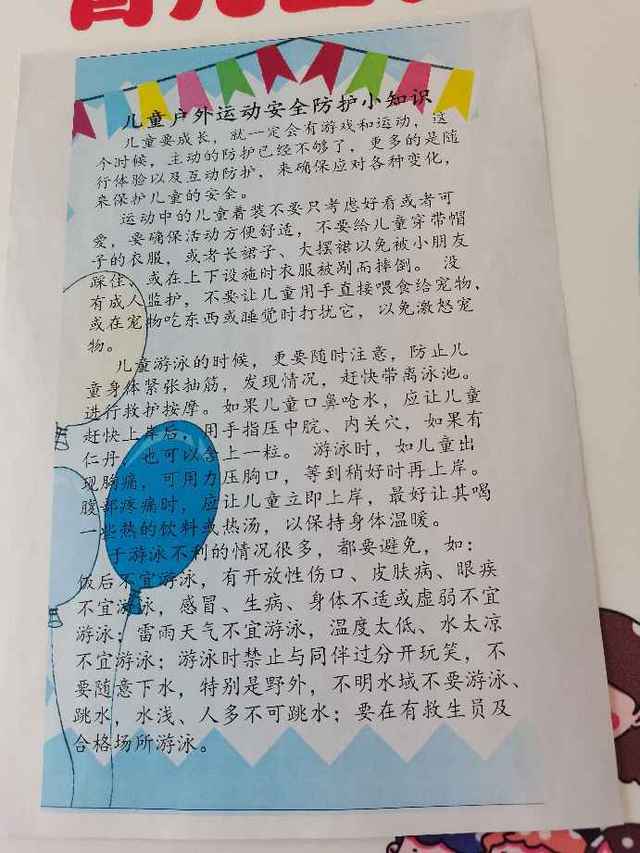 儿童户外运动安全防护小知识
儿童要成长，就一定会有游戏和运动，这
个时候，主动的防护已经不够了，更多的是随
行体验以及互动防护，来确保应对各种变化，
来保护儿童的安全。
运动中的儿童着装不要只考虑好看或者可
爱，要确保活动方便舒适，不要给儿童穿带帽
子的衣服，或者长裙子、大摆裙以免被小朋友
踩住、或在上下设施时衣服被剐而摔倒。 没
有成人监护，不要让儿童用手直接喂食给宠物，
或在宠物吃东西或睡觉时打扰它，以免激怒宠
物。
儿童游泳的时候，更要随时注意，防止儿
童身体紧张抽筋，发现情况，赶快带离泳池。
进行救护按摩。如果儿童口鼻呛水，应让儿童
赶快上岸后，用手指压中脘、内关穴，如果有
仁丹，也可以含上一粒。 游泳时，如儿童出
现胸痛，可用力压胸口，等到稍好时再上岸。
腹部疼痛时，应让儿童立即上岸，最好让其喝
一些热的饮料或热汤，以保持身体温暖。
于游泳不利的情况很多，都要避免，如：
饭后不宜游泳，有开放性伤口、皮肤病、眼疾
不宜游泳，感冒、生病、身体不适或虚弱不宜
游泳；雷雨天气不宜游泳，温度太低、水太凉
不宜游泳；游泳时禁止与同伴过分开玩笑，不
要随意下水，特别是野外，不明水域不要游泳、
跳水，水浅、人多不可跳水；要在有救生员及
合格场所游泳。